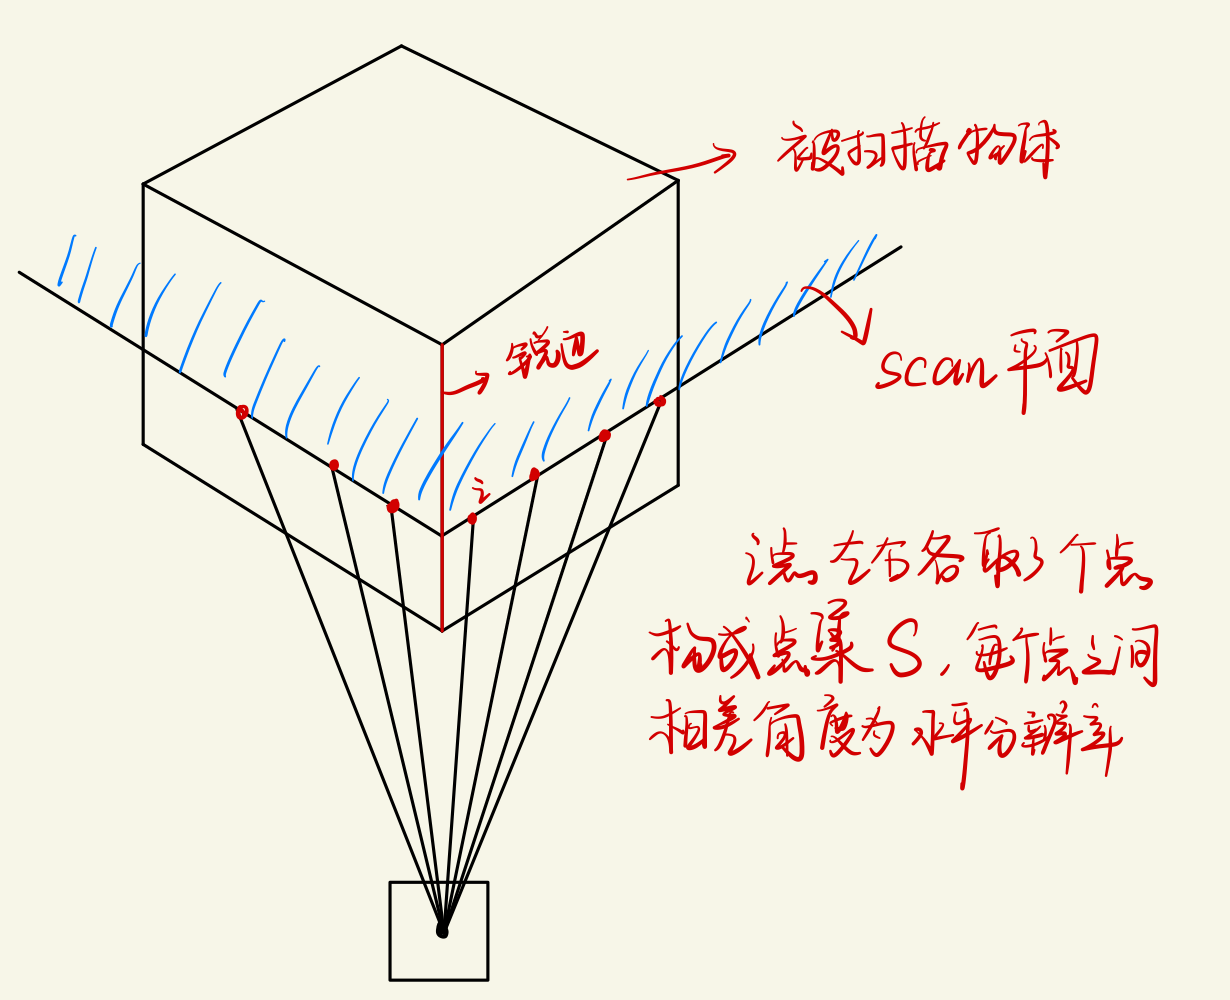 被扫描物体
锐边
scan平面
i
i点左右各取3个点
构成点集S,每个点之间
相差角度为水平分辨率